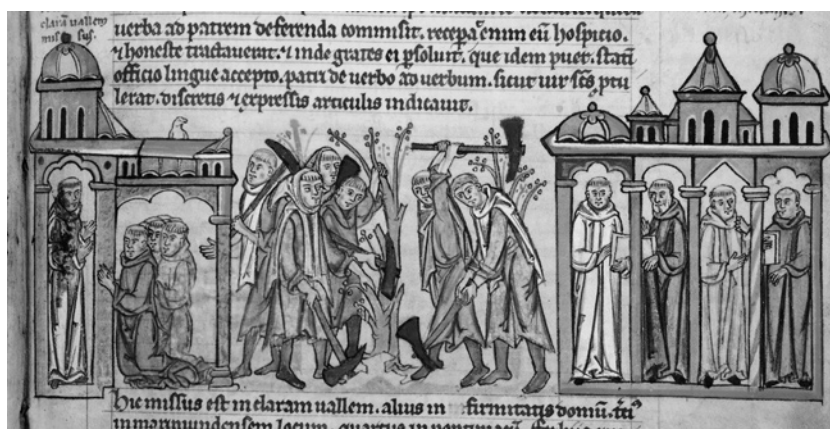 clarā uallem
mis sus.
uerba ad patrem deferenda commisit. recepa enim eū hospicio.
⁊ honeste tractauerat. ⁊ inde grates ei psoluit. que idem puer. statī
officio lingue accepto. patri de uerbo ad uerbum. sicut uir scs ptu
lerat. discretis ⁊ expressis articulis indicauit.
Hic missus est in claram uallem. alius in firmitatis domū. tci
in marimundensem locum. quartus in pontiniacū